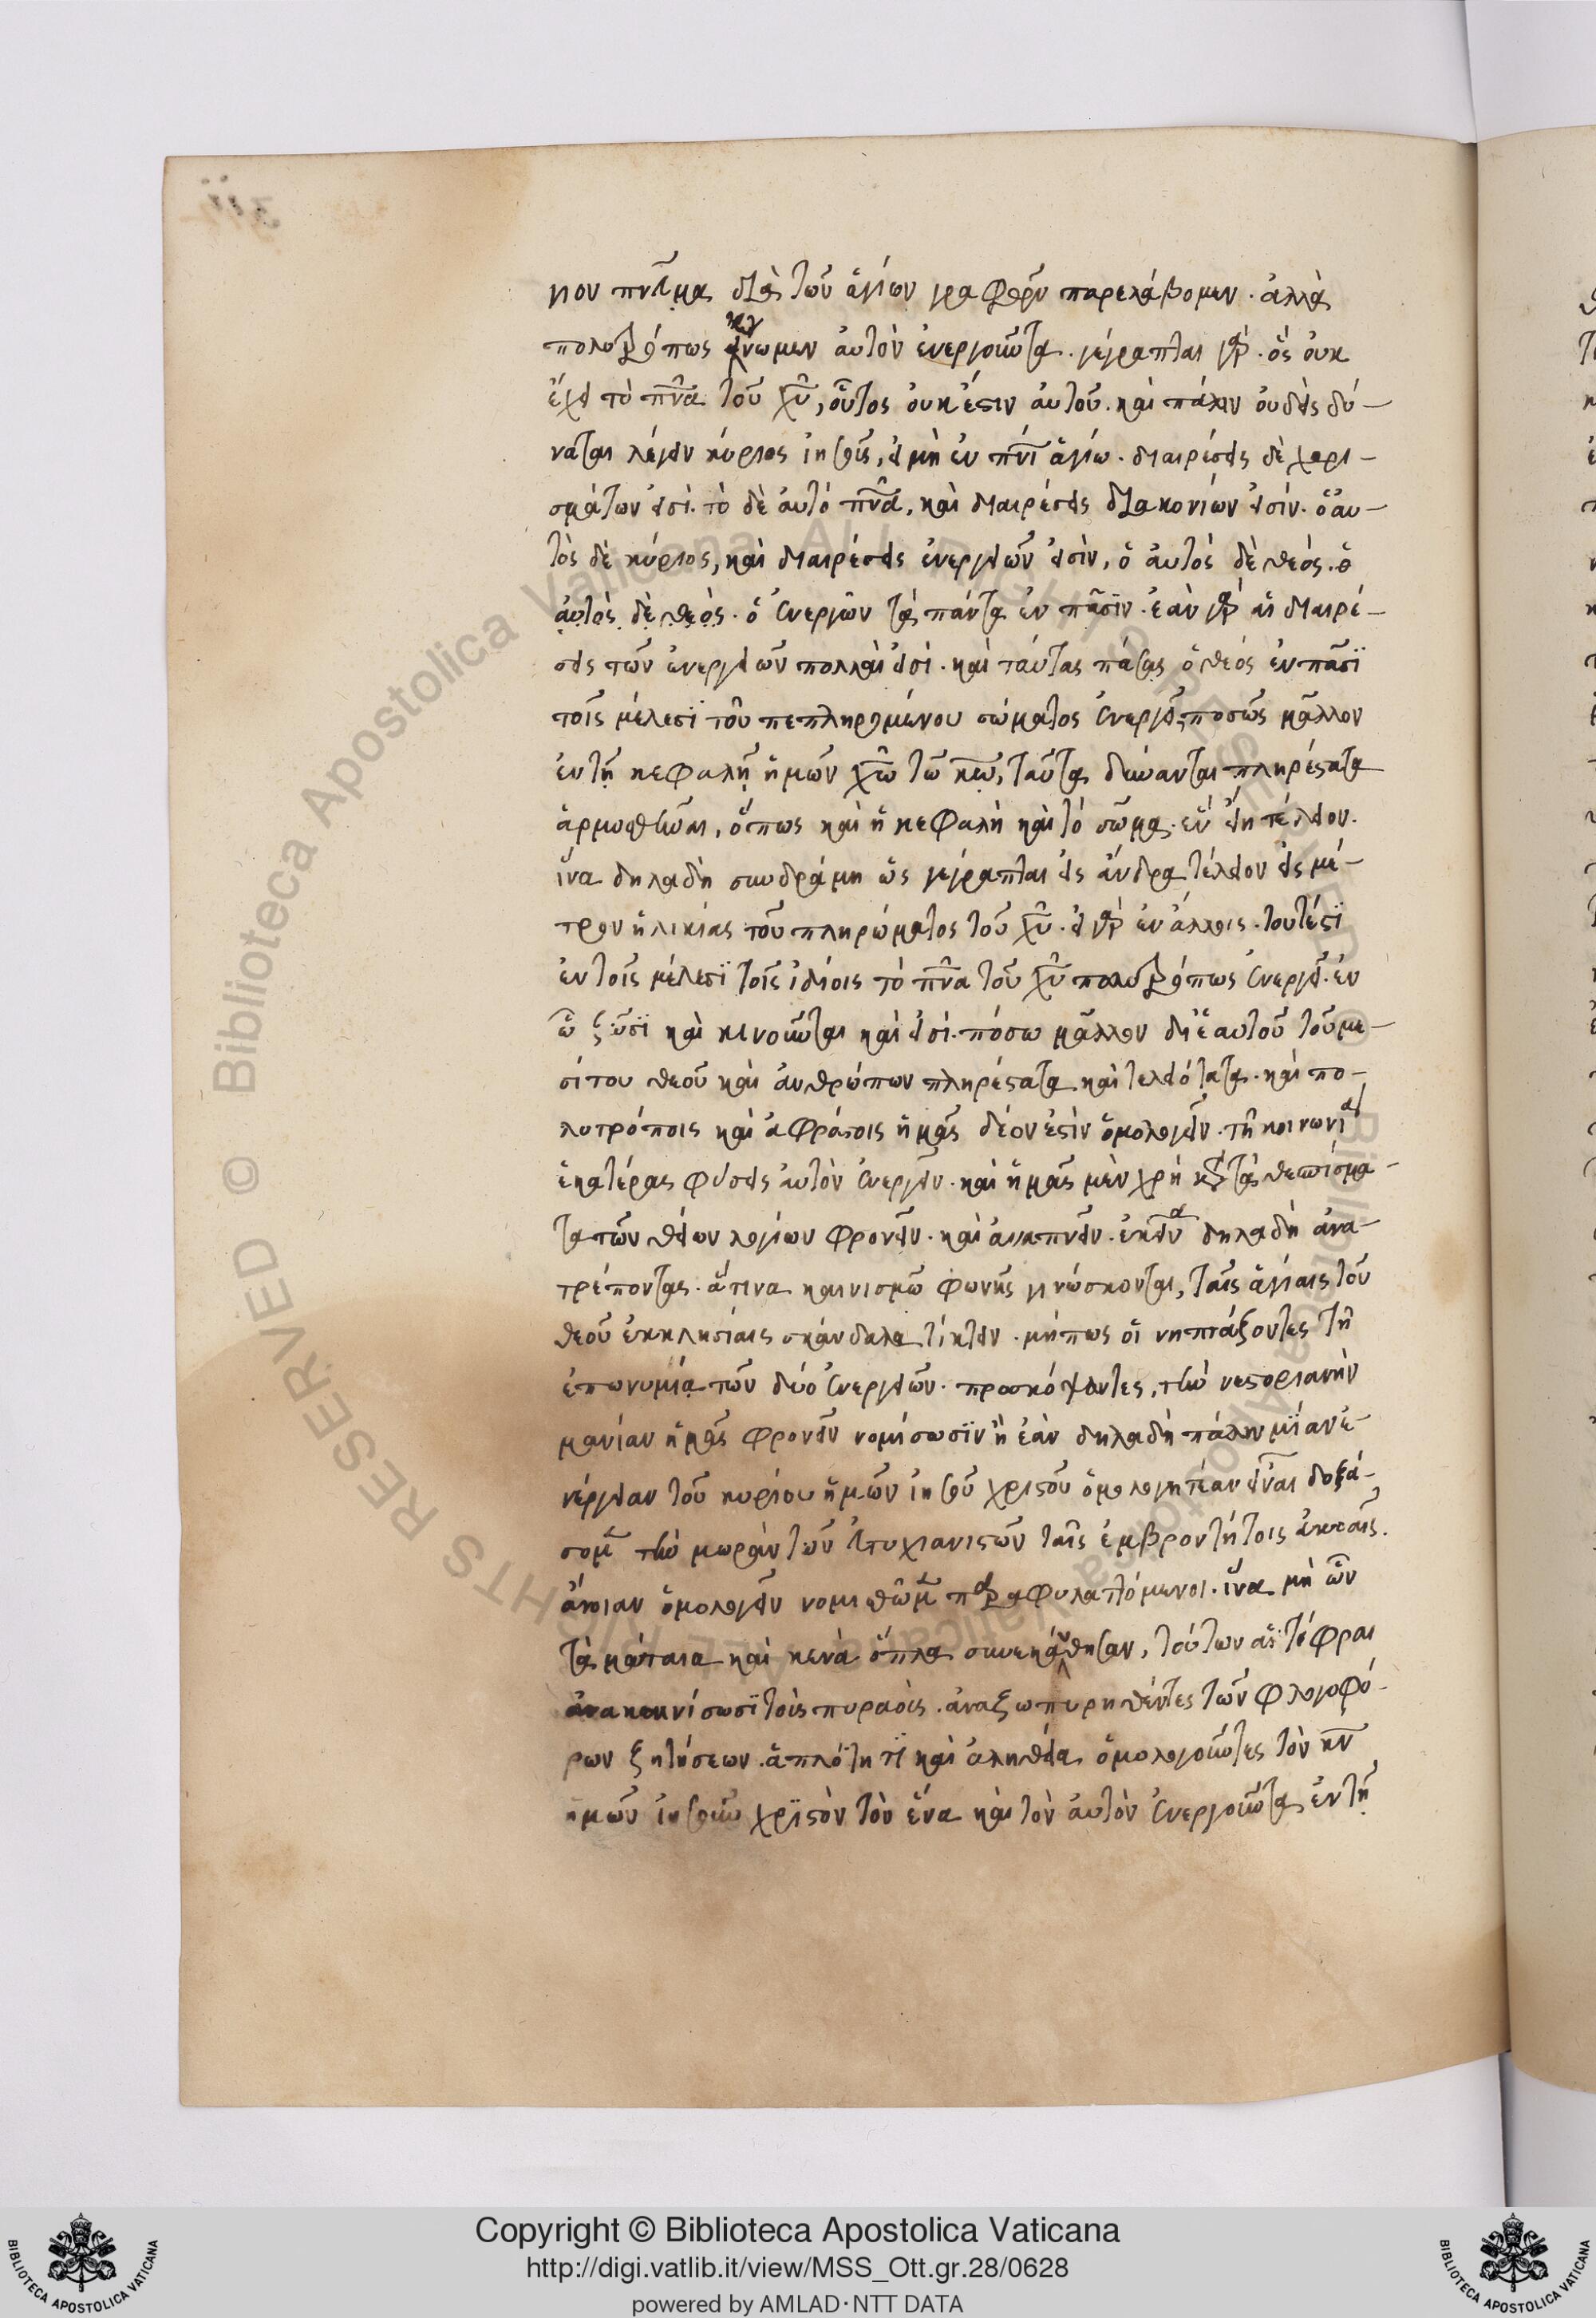 γιον πνεῦμα διὰ τῶν ἁγίων γραφῶν παρελάβομεν. ἀλλὰ
πολυτρόπως ἔγνωμεν αὐτὸν ἐνεργοῦντα. γέγραπται γὰρ. ὃς οὐκ
ἔχει τὸ πνα τοῦ χυ, οὗτος οὐκ ἔστιν αὐτοῦ. καὶ πάλιν οὐδεὶς δύ-
ναται λέγειν κύριος ἰησοῦς, εἰ μὴ ἐν πνι ἁγίω. διαιρέσεις δὲ χαρι-
σμάτων εἰσὶ. τὸ δὲ αὐτό πνα, καὶ διαιρέσεις διακονιῶν εἰσίν. ὁ αὐ-
τὸς δὲ κύριος, καὶ διαιρέσεις ἐνεργειῶν εἰσὶν, ὁ αὐτὸς δὲ θεός. ὁ
αὐτὸς δὲ θεὸς. ὁ ἐνεργῶν τὰ πάντα ἐν πᾶσϊν. ἐὰν γὰρ αἱ διαιρέ-
σεις τῶν ἐνεργειῶν πολλαὶ εἰσὶ. καὶ ταύτας πάσας ὁ θεός ἐν πᾶσϊ
τοῖς μέλεσϊ τοῦ πεπληρωμένου σώματος ἐνεργεῖ, ποσῶς μᾶλλον
ἐν τῇ κεφαλῇ ἡμῶν χω τῶ κω, ταῦτα δύνανται πληρέστατα
ἁρμοσθῆναι, ὅπως καὶ ἡ κεφαλὴ καὶ τὸ σῶμα. ἓν εἴη τέλειον.
ἵνα δηλαδὴ συνδράμη ὡς γέγραπται εἰς ἄνδρα τέλειον εἰς μέ-
τρον ἡλικίας τοῦ πληρώματος τοῦ χυ. εἰ γὰρ ἐν ἄλλοις. τουτέστϊ
ἐν τοῖς μέλεσϊ τοῖς ἰδίοις τὸ πνα τοῦ χυ πολυτρόπως ἐνεργεῖ. ἐν
ὧ ζῶσϊ καὶ κινοῦνται καὶ εἰσὶ. πόσω μᾶλλον δι' ἑαυτοῦ τοῦ με-
σίτου θεοῦ καὶ ἀνθρώπων πληρέστατα καὶ τελειότατα. καὶ πο-
λυτρόποις καὶ ἀφράστοις ἡμᾶς δέον ἐστὶν ὁμολογεῖν. τῆ κοινωνία
ἑκατέρας φύσεις αὐτὸν ἐνεργεῖν. καὶ ἡμᾶς μὲν χρὴ κατὰ τὰ θεσπίσμα-
τα τῶν θείων λογίων φρονεῖν. καὶ ἀναπνεῖν. ἐκεῖνα δηλαδὴ ἀνα-
τρέποντας. ἅτινα καινισμῶ φωνῆς γινώσκονται, ταῖς ἁγίαις τοῦ
θεοῦ ἐκκλησίαις σκάνδαλα τίκτειν. μήπως οἱ νηπιάζοντες τῆ
ἐπωνυμία τῶν δύο ἐνεργειῶν. προσκόψαντες, τὴν νεστοριανὴν
μανίαν ἡμᾶς φρονεῖν νομίσωσϊν ἢ ἐὰν δηλαδὴ πάλιν μίαν ἐ-
νέργειαν τοῦ κυρίου ἡμῶν ἰησοῦ χριστοῦ ὁμολογητέαν εἶναι δοξά-
σομεν τὴν μωρὰν τῶν εὐτυχιανιστῶν ταῖς ἐμβροντήτοις ἀκοαῖς.
ἄνοιαν ὁμολογεῖν νομισθῶμεν παραφυλαττόμενοι. ἵνα μὴ ὧν
τὰ μάταια καὶ κενὰ ὅπλα συνεκαύθησαν, τούτων αἱ τέφραι
ἀνακαινίσωσϊ τοὺς πυρσοὺς. ἀναζωπυρηθέντες τῶν φλογοφό-
ρων ζητήσεων. ἁπλότητϊ καὶ ἀληθεία ὁμολογοῦντες τὸν κν
ἡμῶν ἰησοῦν χρϊστὸν τὸν ἕνα καὶ τὸν αὐτὸν ἐνεργοῦντα ἐν τῇ
Copyright © Biblioteca Apostolica Vaticana
http://digi.vatlib.it/view/MSS_Ott.gr.28/0628
powered by AMLAD·NTT DATA
BIBLIOTECA APOSTOLICA VATICANA
BIBLIOTECA APOSTOLICA VATICANA